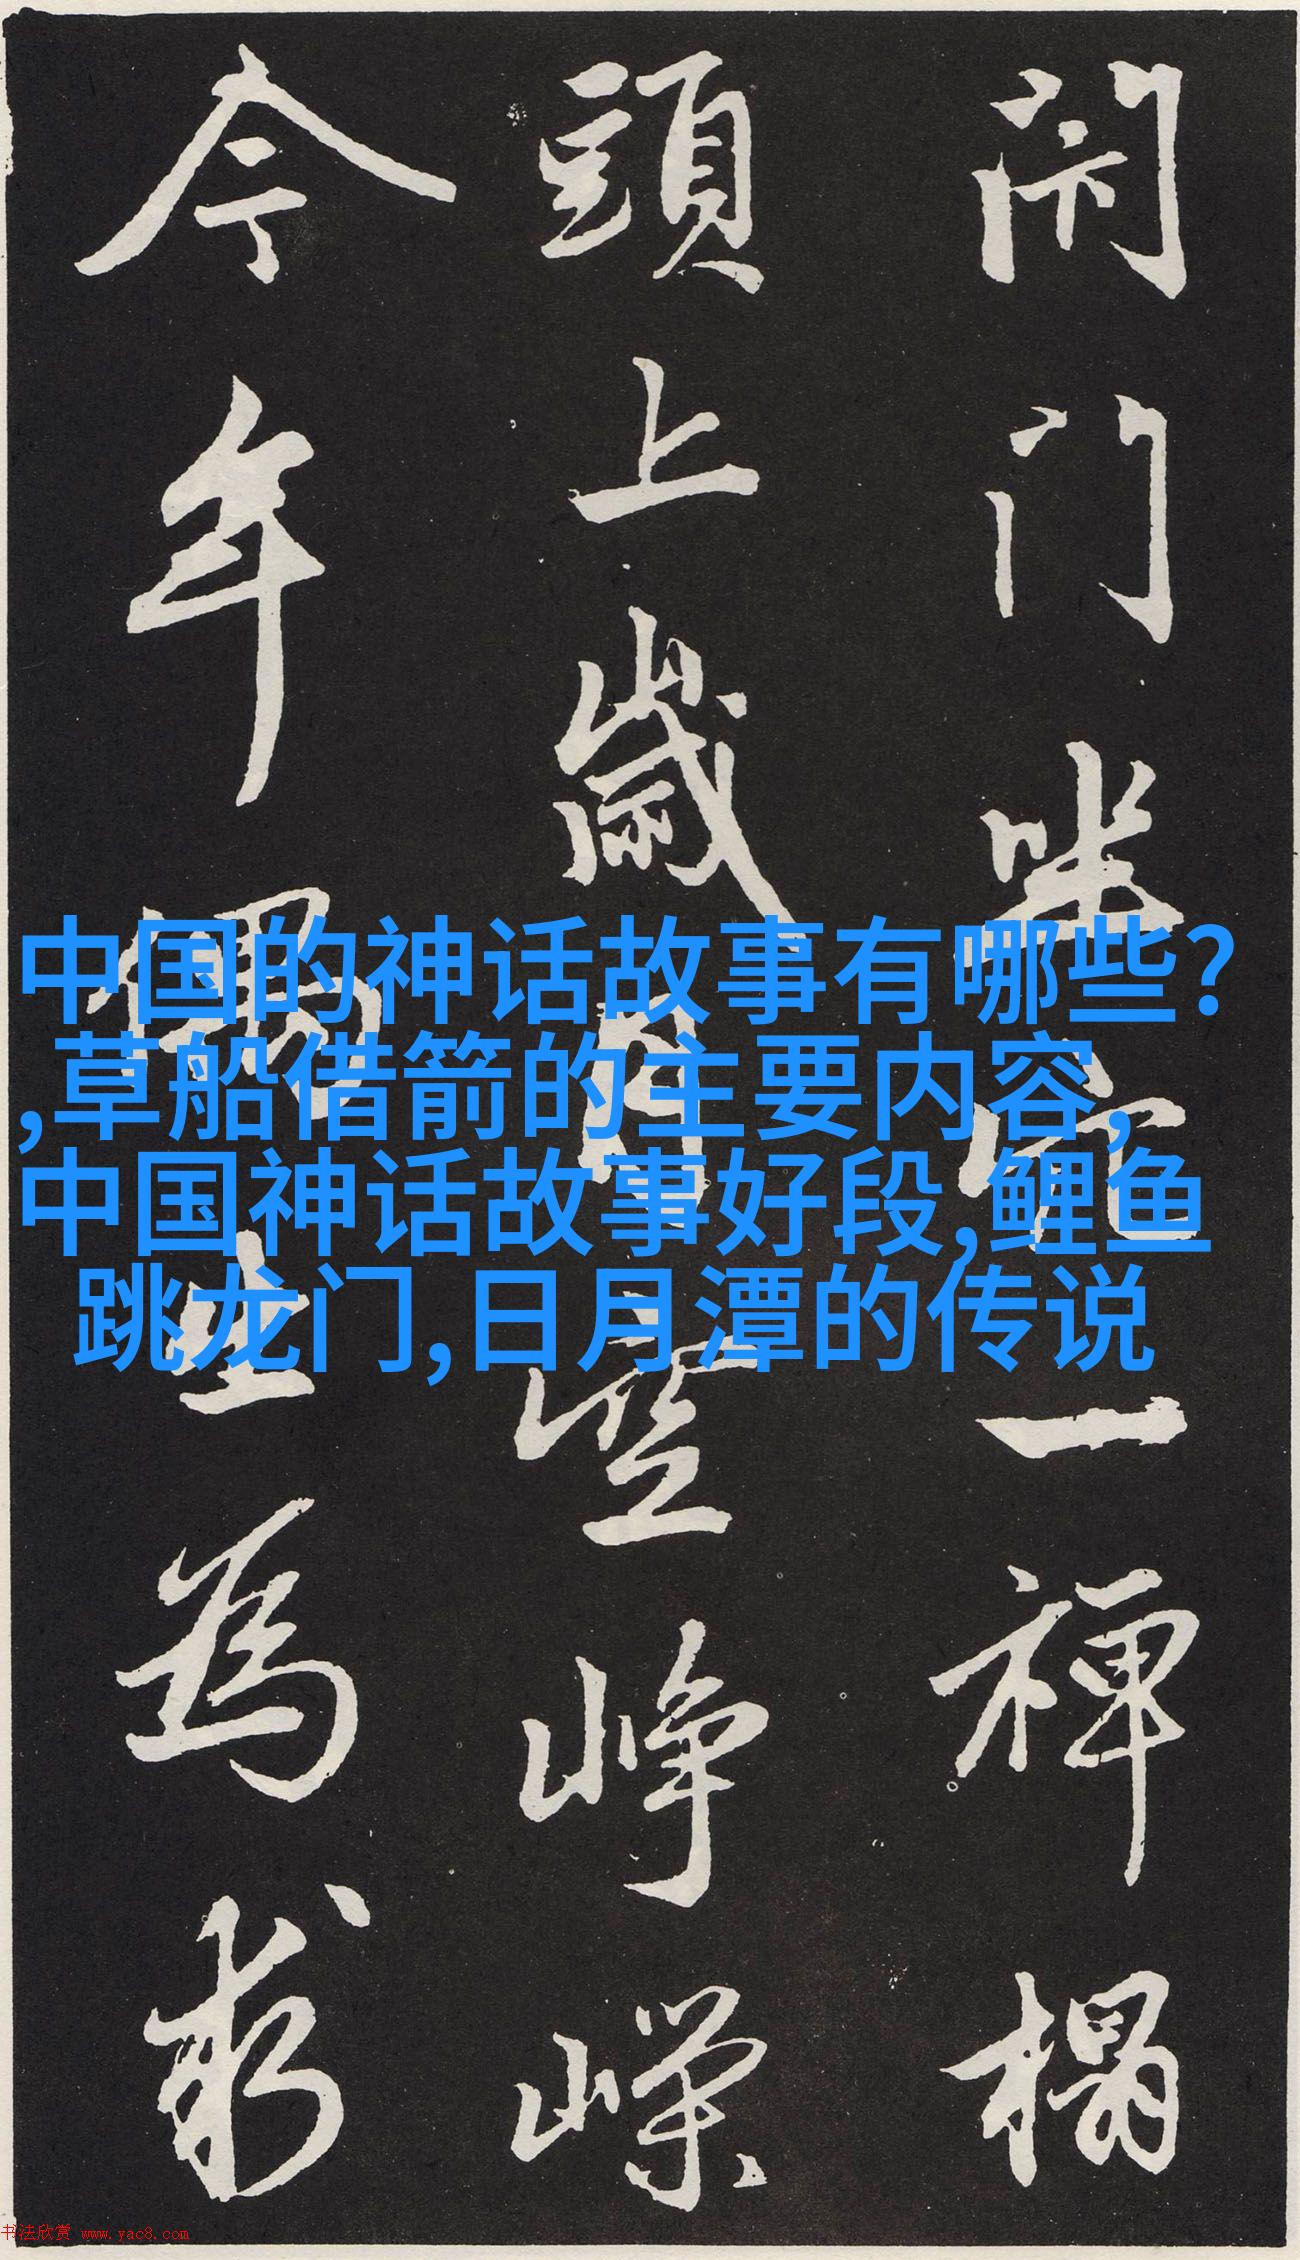 閇门坐穴一禅榻
頭上歲月空崢嶸
今年偶出為求
中国的神话故事有哪些?
,草船借箭的主要内容,
中国神话故事好段,鲤鱼
跳龙门,日月潭的传说
书法欣赏 www.yac8.com